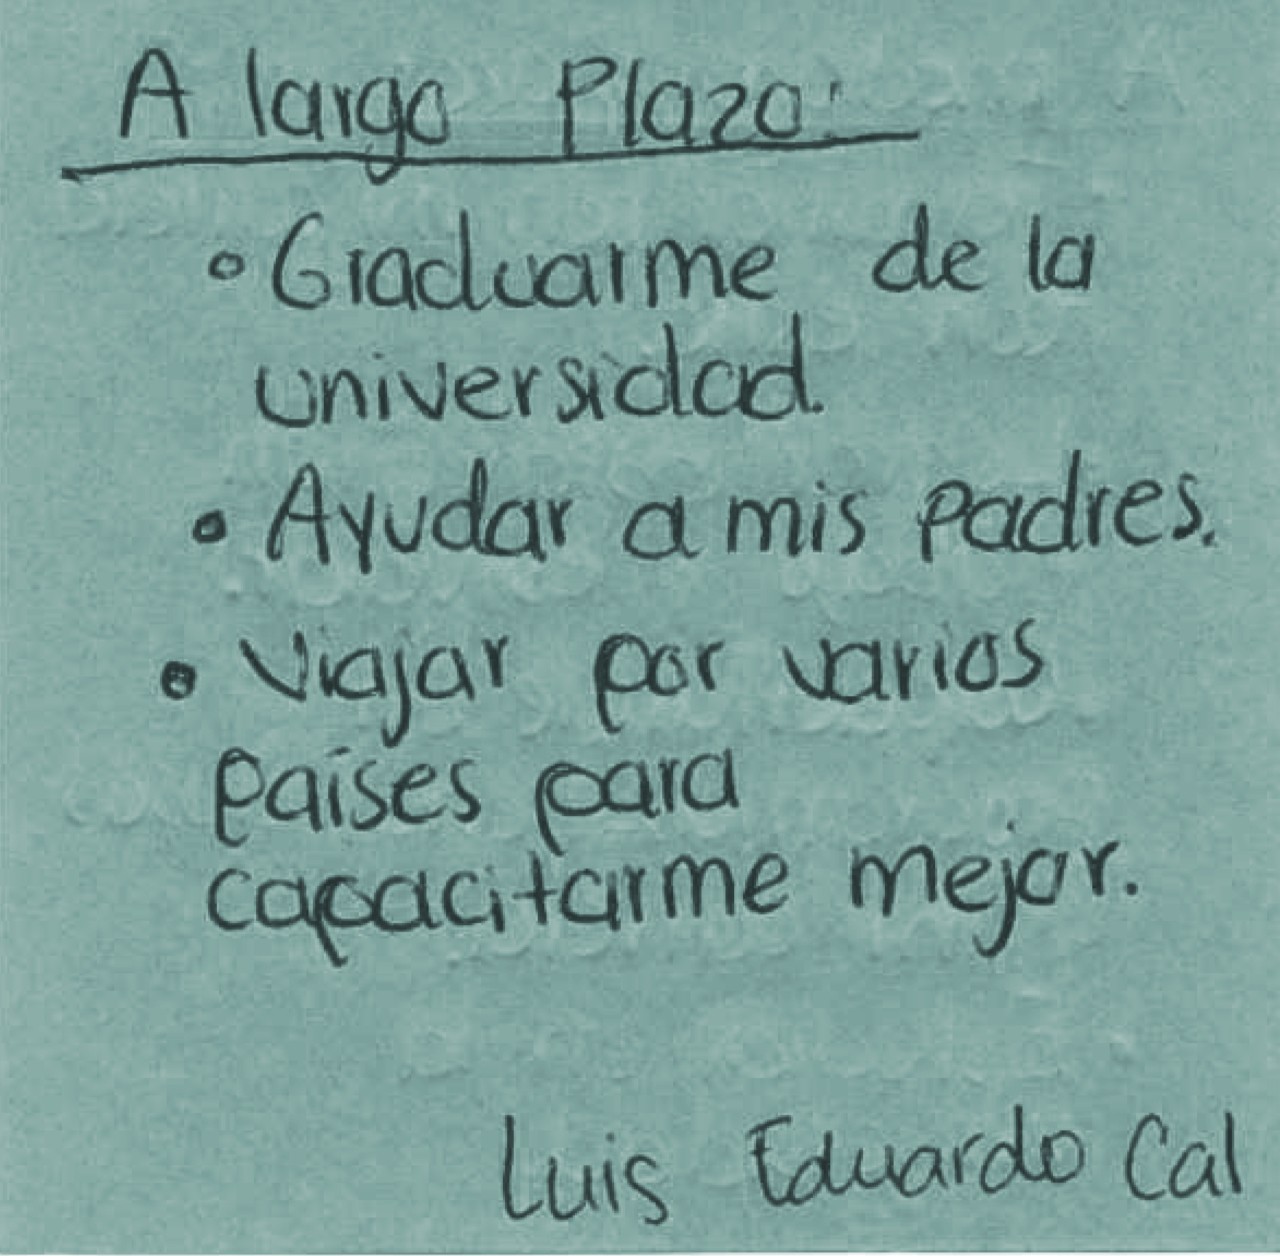 A largo Plazo:
• Graduarme de la
universidad.
• Ayudar a mis padres.
• Viajar por varios
países para
capacitarme mejor.
Luis Eduardo Cal